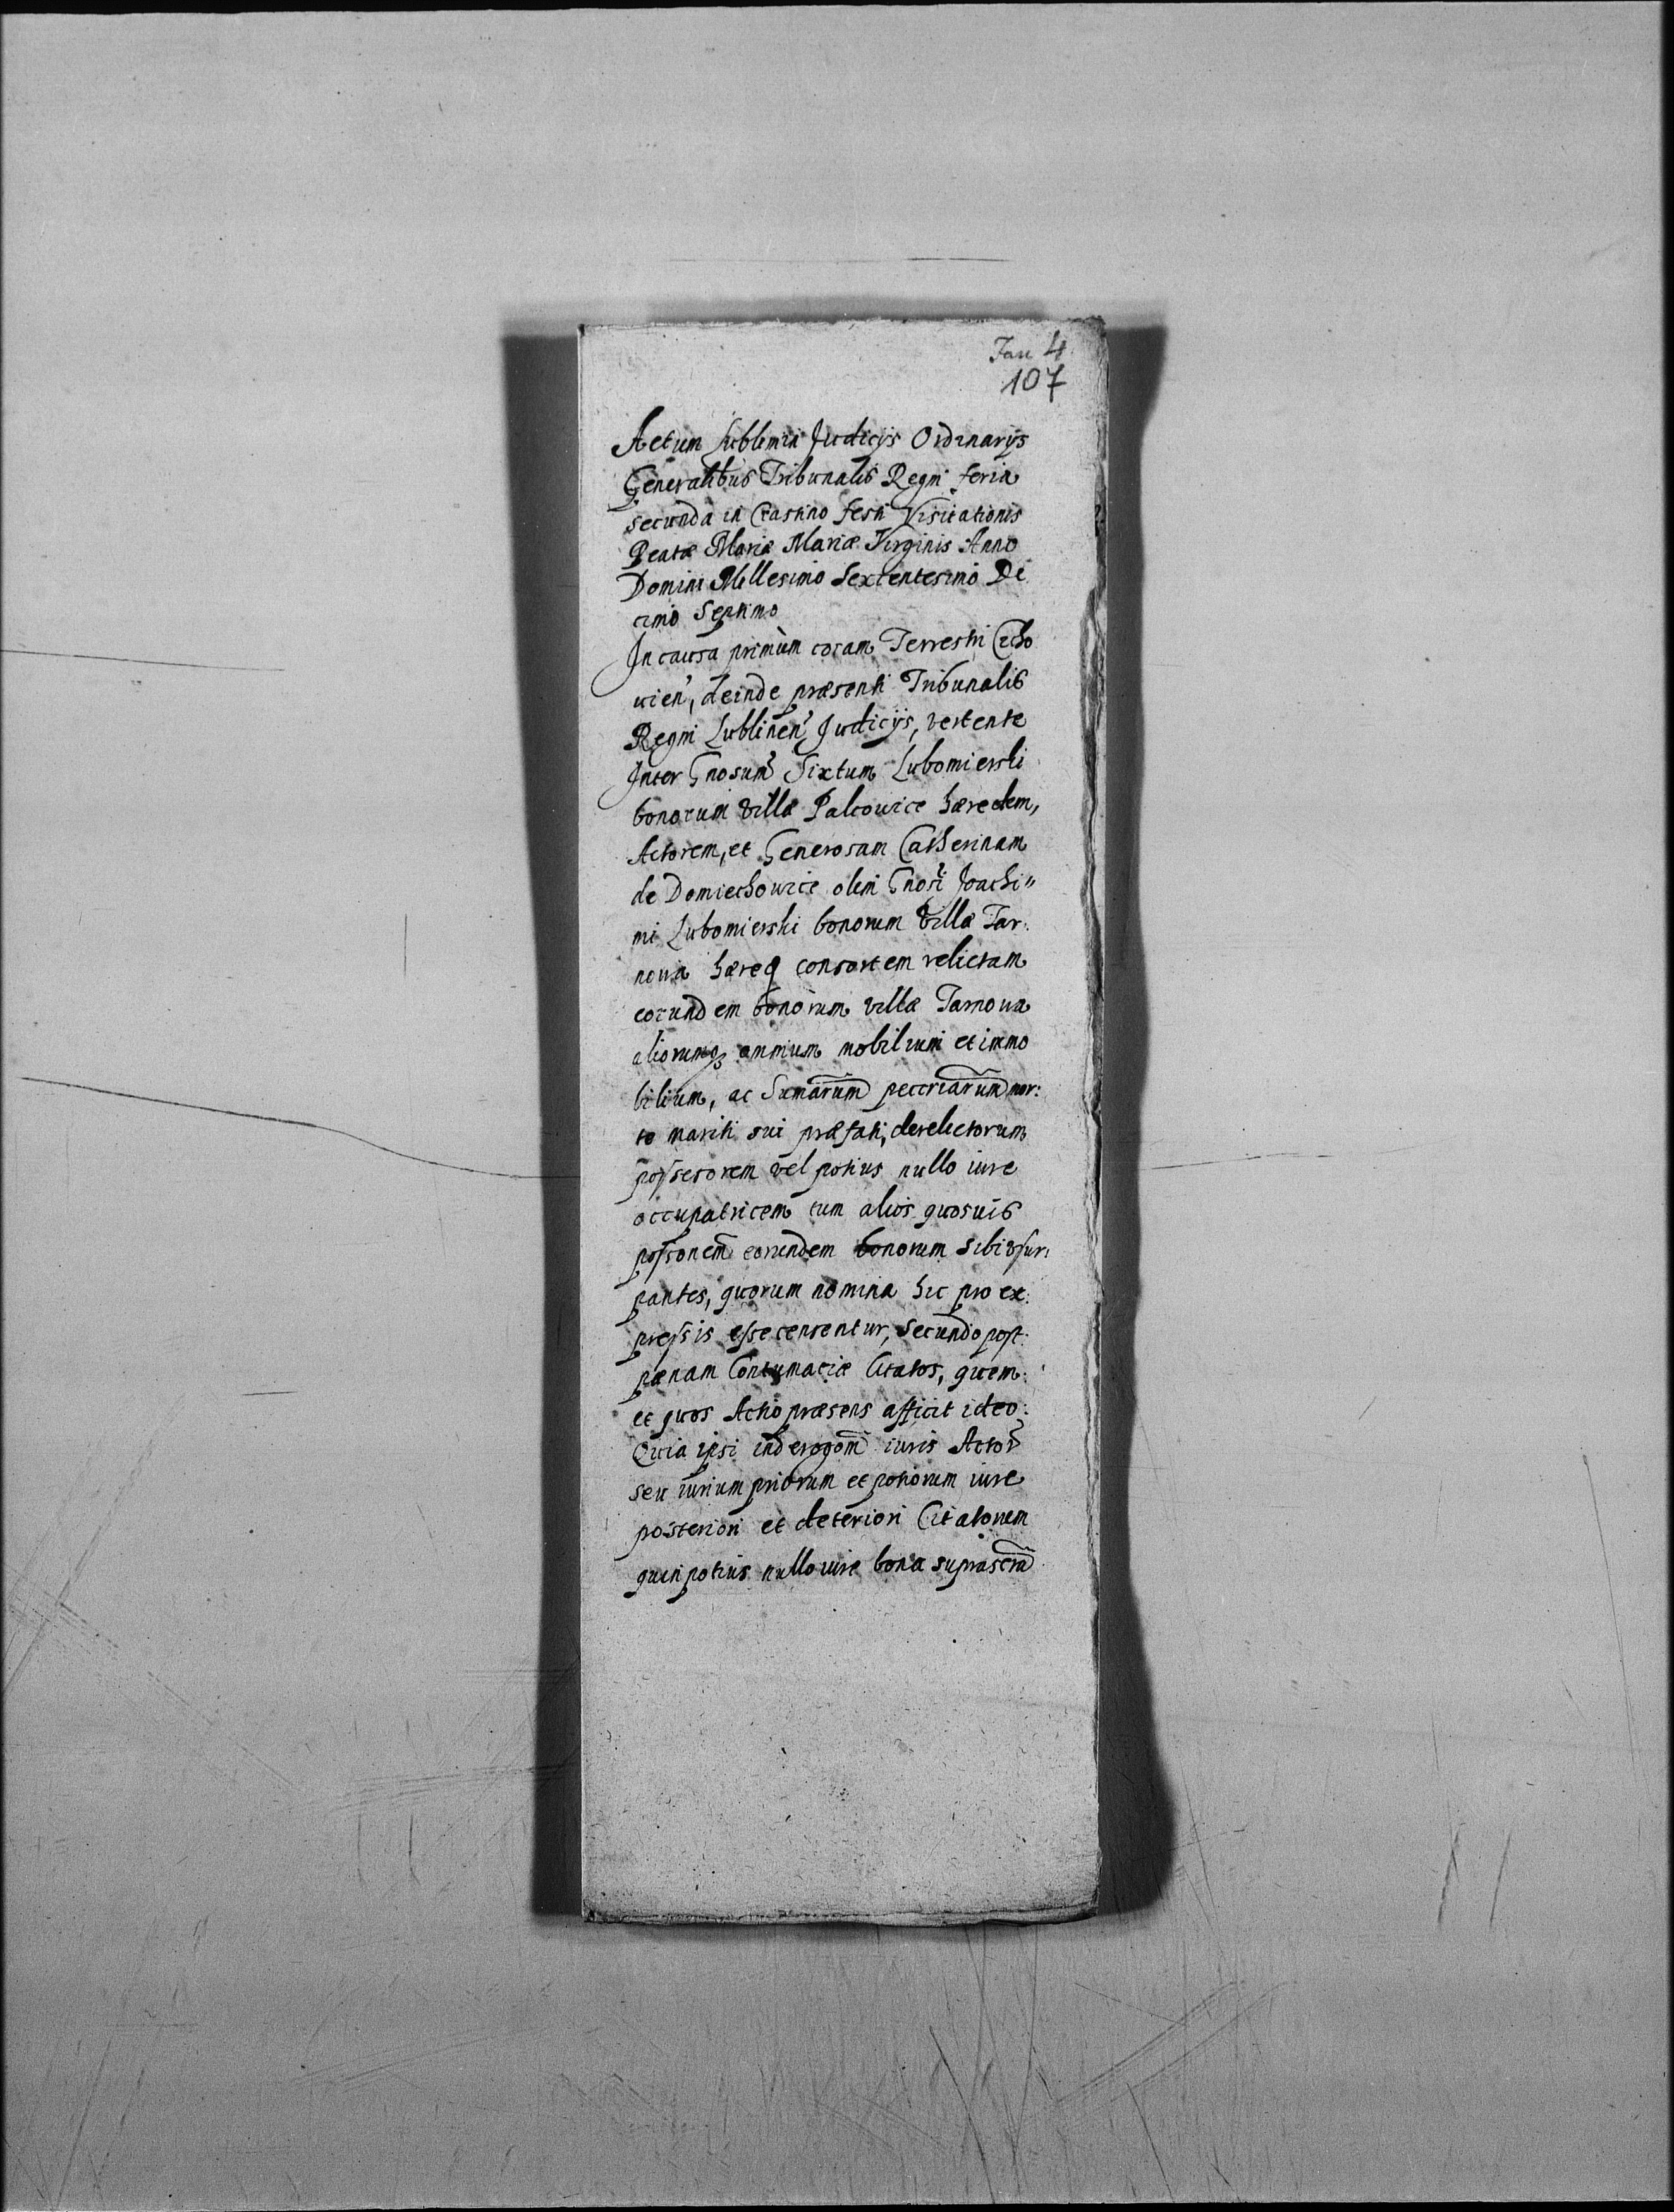 Jan 4
107
Actum Lublini in Judicijs Ordinarijs
Generalibus Tribunalis Regni feria
secunda in Crastino festi Visitationis
Beatæ Mariæ Mariæ Virginis Anno
Domini Millesimo Sexcentesimo De
cimo Septimo
In causa primùm coram Terrestri Czcho
uien, deinde præsenti Tribunalis
Regni Lublinen Judicijs, vertente
Inter Gnosum Sixtum Lubomierski
bonorum Villæ Palcowice hæredem,
Actorem, et Generosam Catherinam
de Domiechowice olim Gnosi Joachi„
mi Lubomierski bonorum Villæ Tar:
nowa hæred consortem relictam
eorundem bonorum villæ Tarnowa
aliorumq omnium mobilium et immo
bilium, ac Sumarum pecciarum mor:
te mariti sui præfati, derelictorum
possesorem vel potius nullo iure
occupatricem tum alios quosuis
possonem eorundem bonorum sibi vsur:
pantes, quorum nomina hic pro ex:
pressis esse censentur, secundo post
pænam Contumaciæ Citatos, quem
et quos Actio præsens afficit ideo:
Quia ipsi in derogom iuris Actor
seu iurium priorum et potiorum iure
posteriori et deteriori Citatorum
quin potius nullo iure bona suprascra